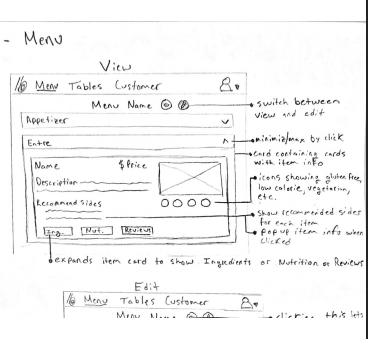 - Menu
View
Menu Tables Customer
Menu Name
switch between
view and edit
Appetizer
Entre
minimiz/max by click
card containing cards
with item info
Name $Price
Description
icons showing gluten free,
low calorie, vegetarian,
etc.
Recommend sides
show recommended sides
for each item
Ing. Nut. Reviews
pop up item info when
clicked
expands item card to show Ingredients or Nutrition or Reviews
Edit
Menu Tables Customer
Menu Name
clicking this lets